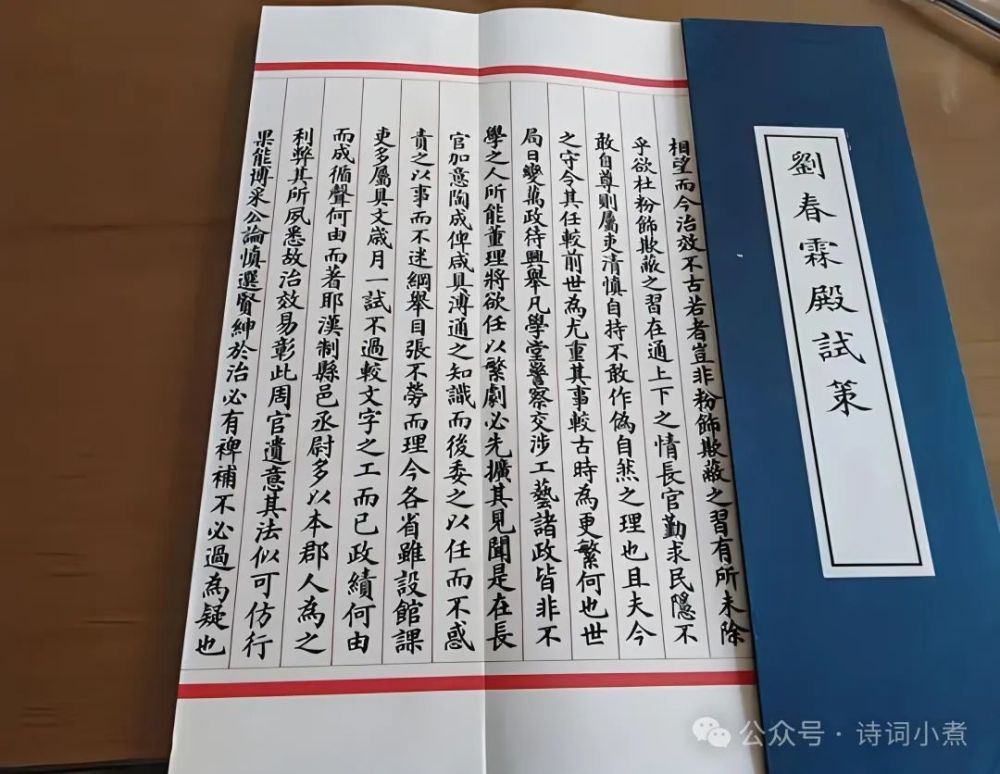 劉春霖殿試策
相望而今治效不古若者豈非粉飾欺蔽之習有所未除
乎欲杜粉飾欺蔽之習在通上下之情長官勤求民隱不
敢自尊則屬吏清慎自持不敢作偽自然之理也且夫今
之守令其任較前世為尤重其事較古時為更繁何也世
局日變萬政待興舉凡學堂警察交涉工藝諸政皆非不
學之人所能董理將欲任以繁劇必先擴其見聞是在長
官加意陶成俾咸具溥通之知識而後委之以任而不惑
責之以事而不迷綱舉目張不勞而理今各省雖設館課
吏多屬具文歲月一試不過較文字之工而已政績何由
而成循聲何由而著耶漢制縣邑丞尉多以本郡人為之
利弊其所夙悉故治效易彰此周官遺意其法似可仿行
果能博采公論慎選賢紳於治必有裨補不必過為疑也
公众号·诗词小煮